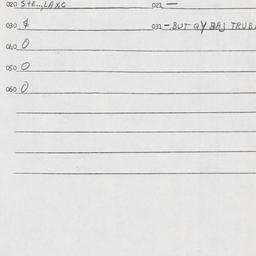 020 STE..,LAXG 021 —
030 $ 031 — BUT QY BAJ TRUB
040 0
050 0
060 0